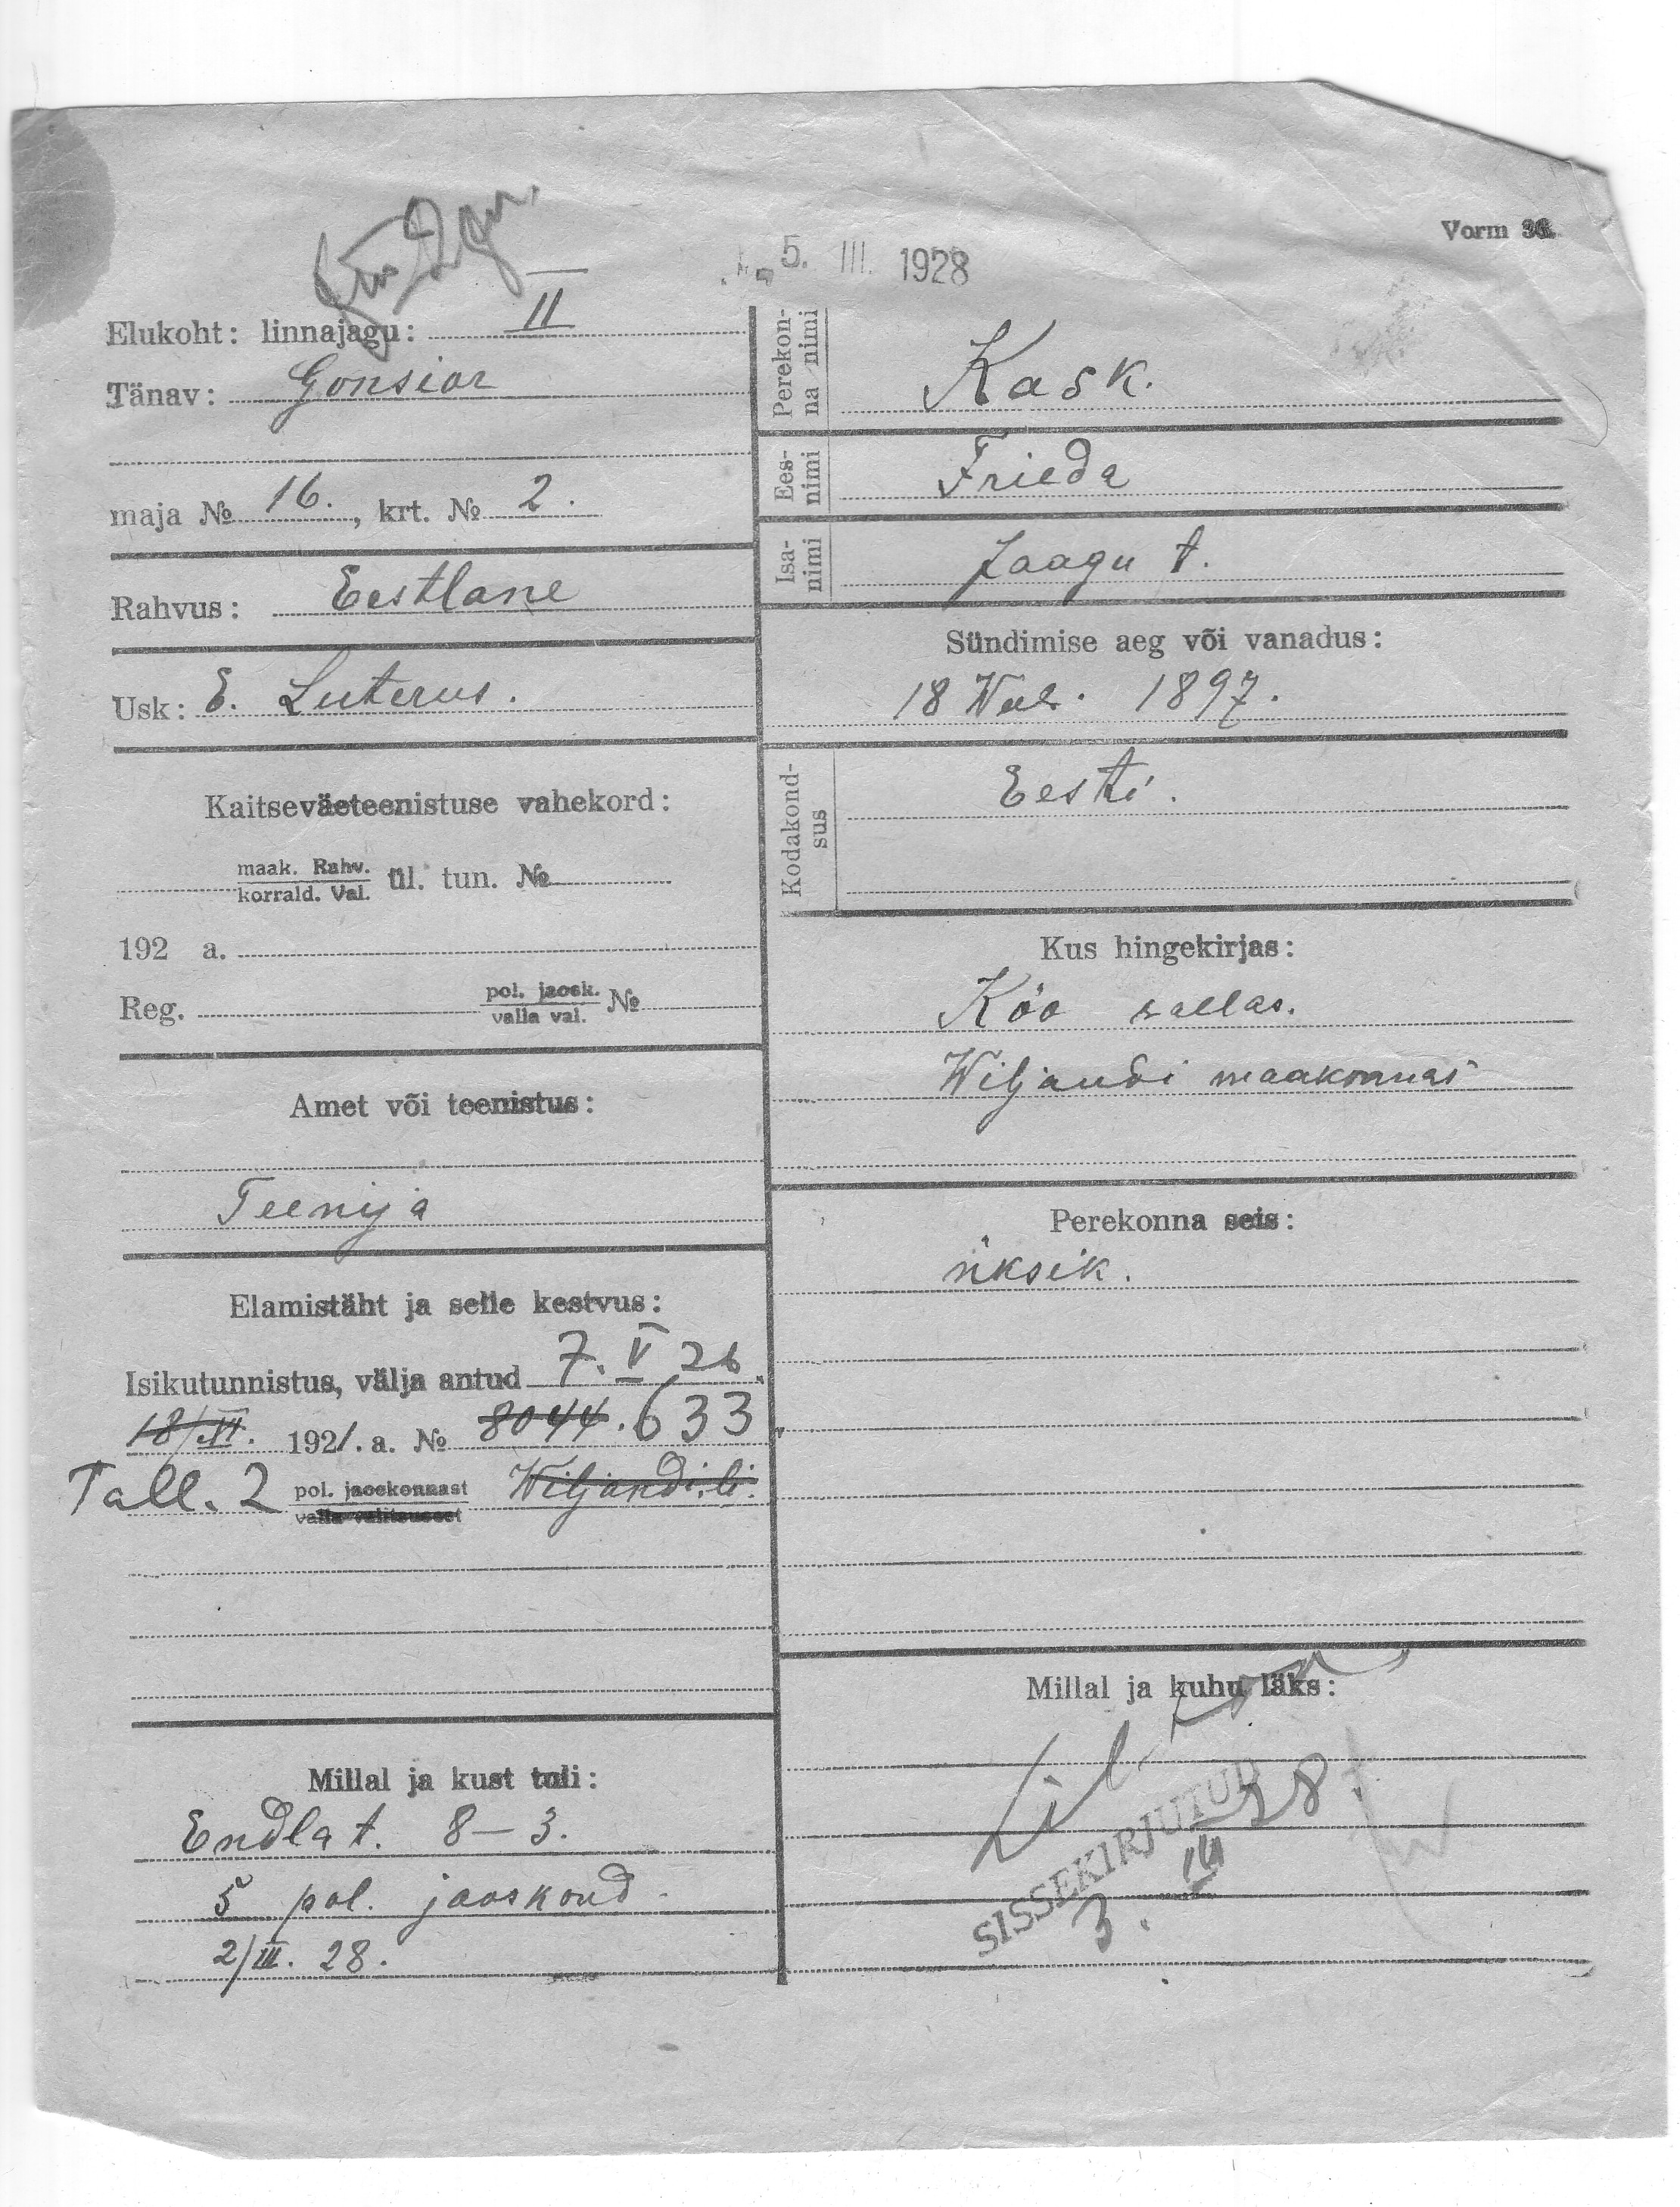 Vorm 36.
5. III. 1928
Elukoht: linnajagu: II
Tänav: Gonsior
maja № 16., krt. № 2.
Rahvus: Eestlane
Usk: E. Luterus.
Kaitseväeteenistuse vahekord:
maak. Rahv.
korrald. Val. ül. tun. №
192 a.
Reg. pol. jaosk. №
valla val.
Amet või teenistus:
Teenija
Elamistäht ja selle kestvus:
Isikutunnistus, välja antud 7. V 26
18/VI. 1921. a. № 8044. 633
Tall. 2 pol. jaoskonnast Wiljandi li.
valla valitsusest
Millal ja kust tuli:
Endla t. 8-3.
5 pol. jaoskond.
2/III. 28.
Perekon-
na nimi
Kask.
Ees-
nimi
Frieda
Isa-
nimi
Jaagu t.
Sündimise aeg või vanadus:
18 1897.
Kodakond-
sus
Eesti.
Kus hingekirjas:
Kõo vallas.
Wiljandi maakonnas
Perekonna seis:
üksik.
Millal ja kuhu läks:
SISSEKIRJUTUD
3. III 28.